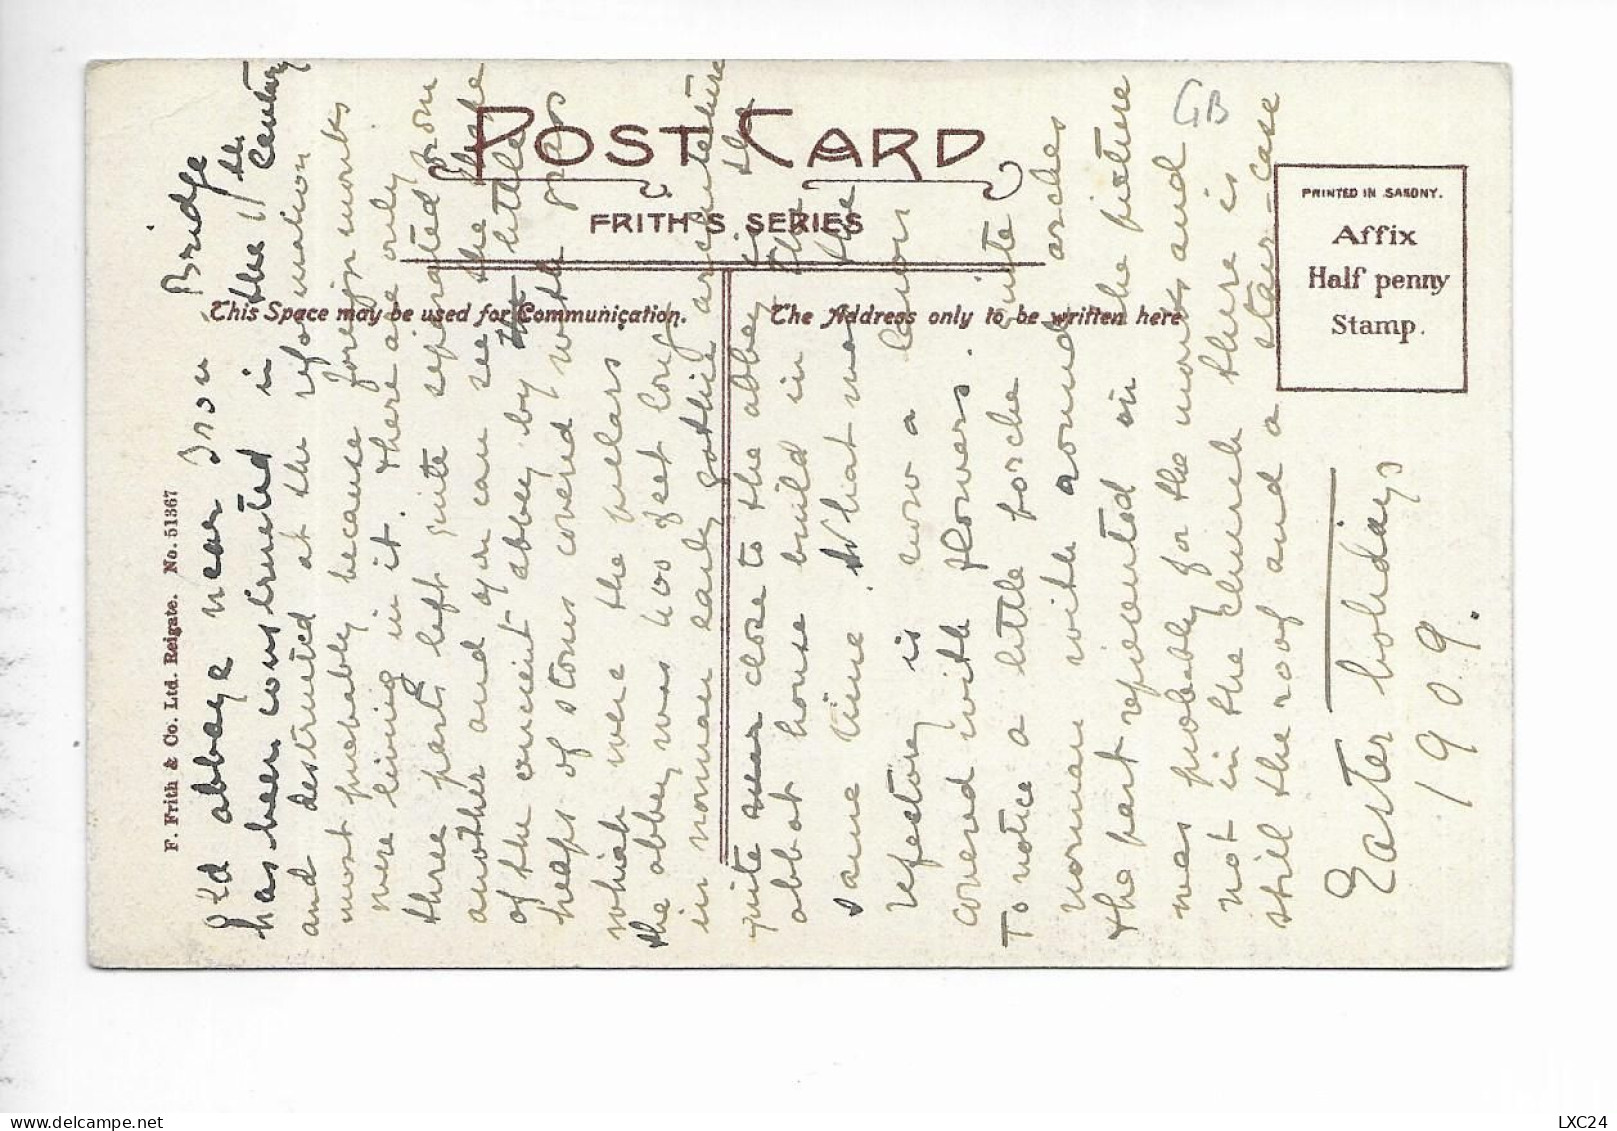 POST CARD
FRITH'S SERIES
This Space may be used for Communication.
The Address only to be written here
PRINTED IN SAXONY.
Affix
Half penny
Stamp.
F. Frith & Co. Ltd. Reigate. No. 51367
GB
Old abbaye near Iron Bridge
has been constructed in the 11th Century
and destructed at the reformation
most probably because foreign monks
were living in it. there are only
three parts left quite separated from
another and you can see the there
of the ancient abbey by the little
heaps of stones covered with grass
which were the pilars.
the abbey was 400 feet long
in norman early gothic architecture
quite near close to the abbey is the
abbot house build in that the
same time. What was the
refectory is now a
covered with flowers. quite
To notice a little porche arches
norman with around
the part represented in the picture
was probably for the monks and
not in the church there is
still the roof and a stair-case
Easter holidays
1909.
LXC24